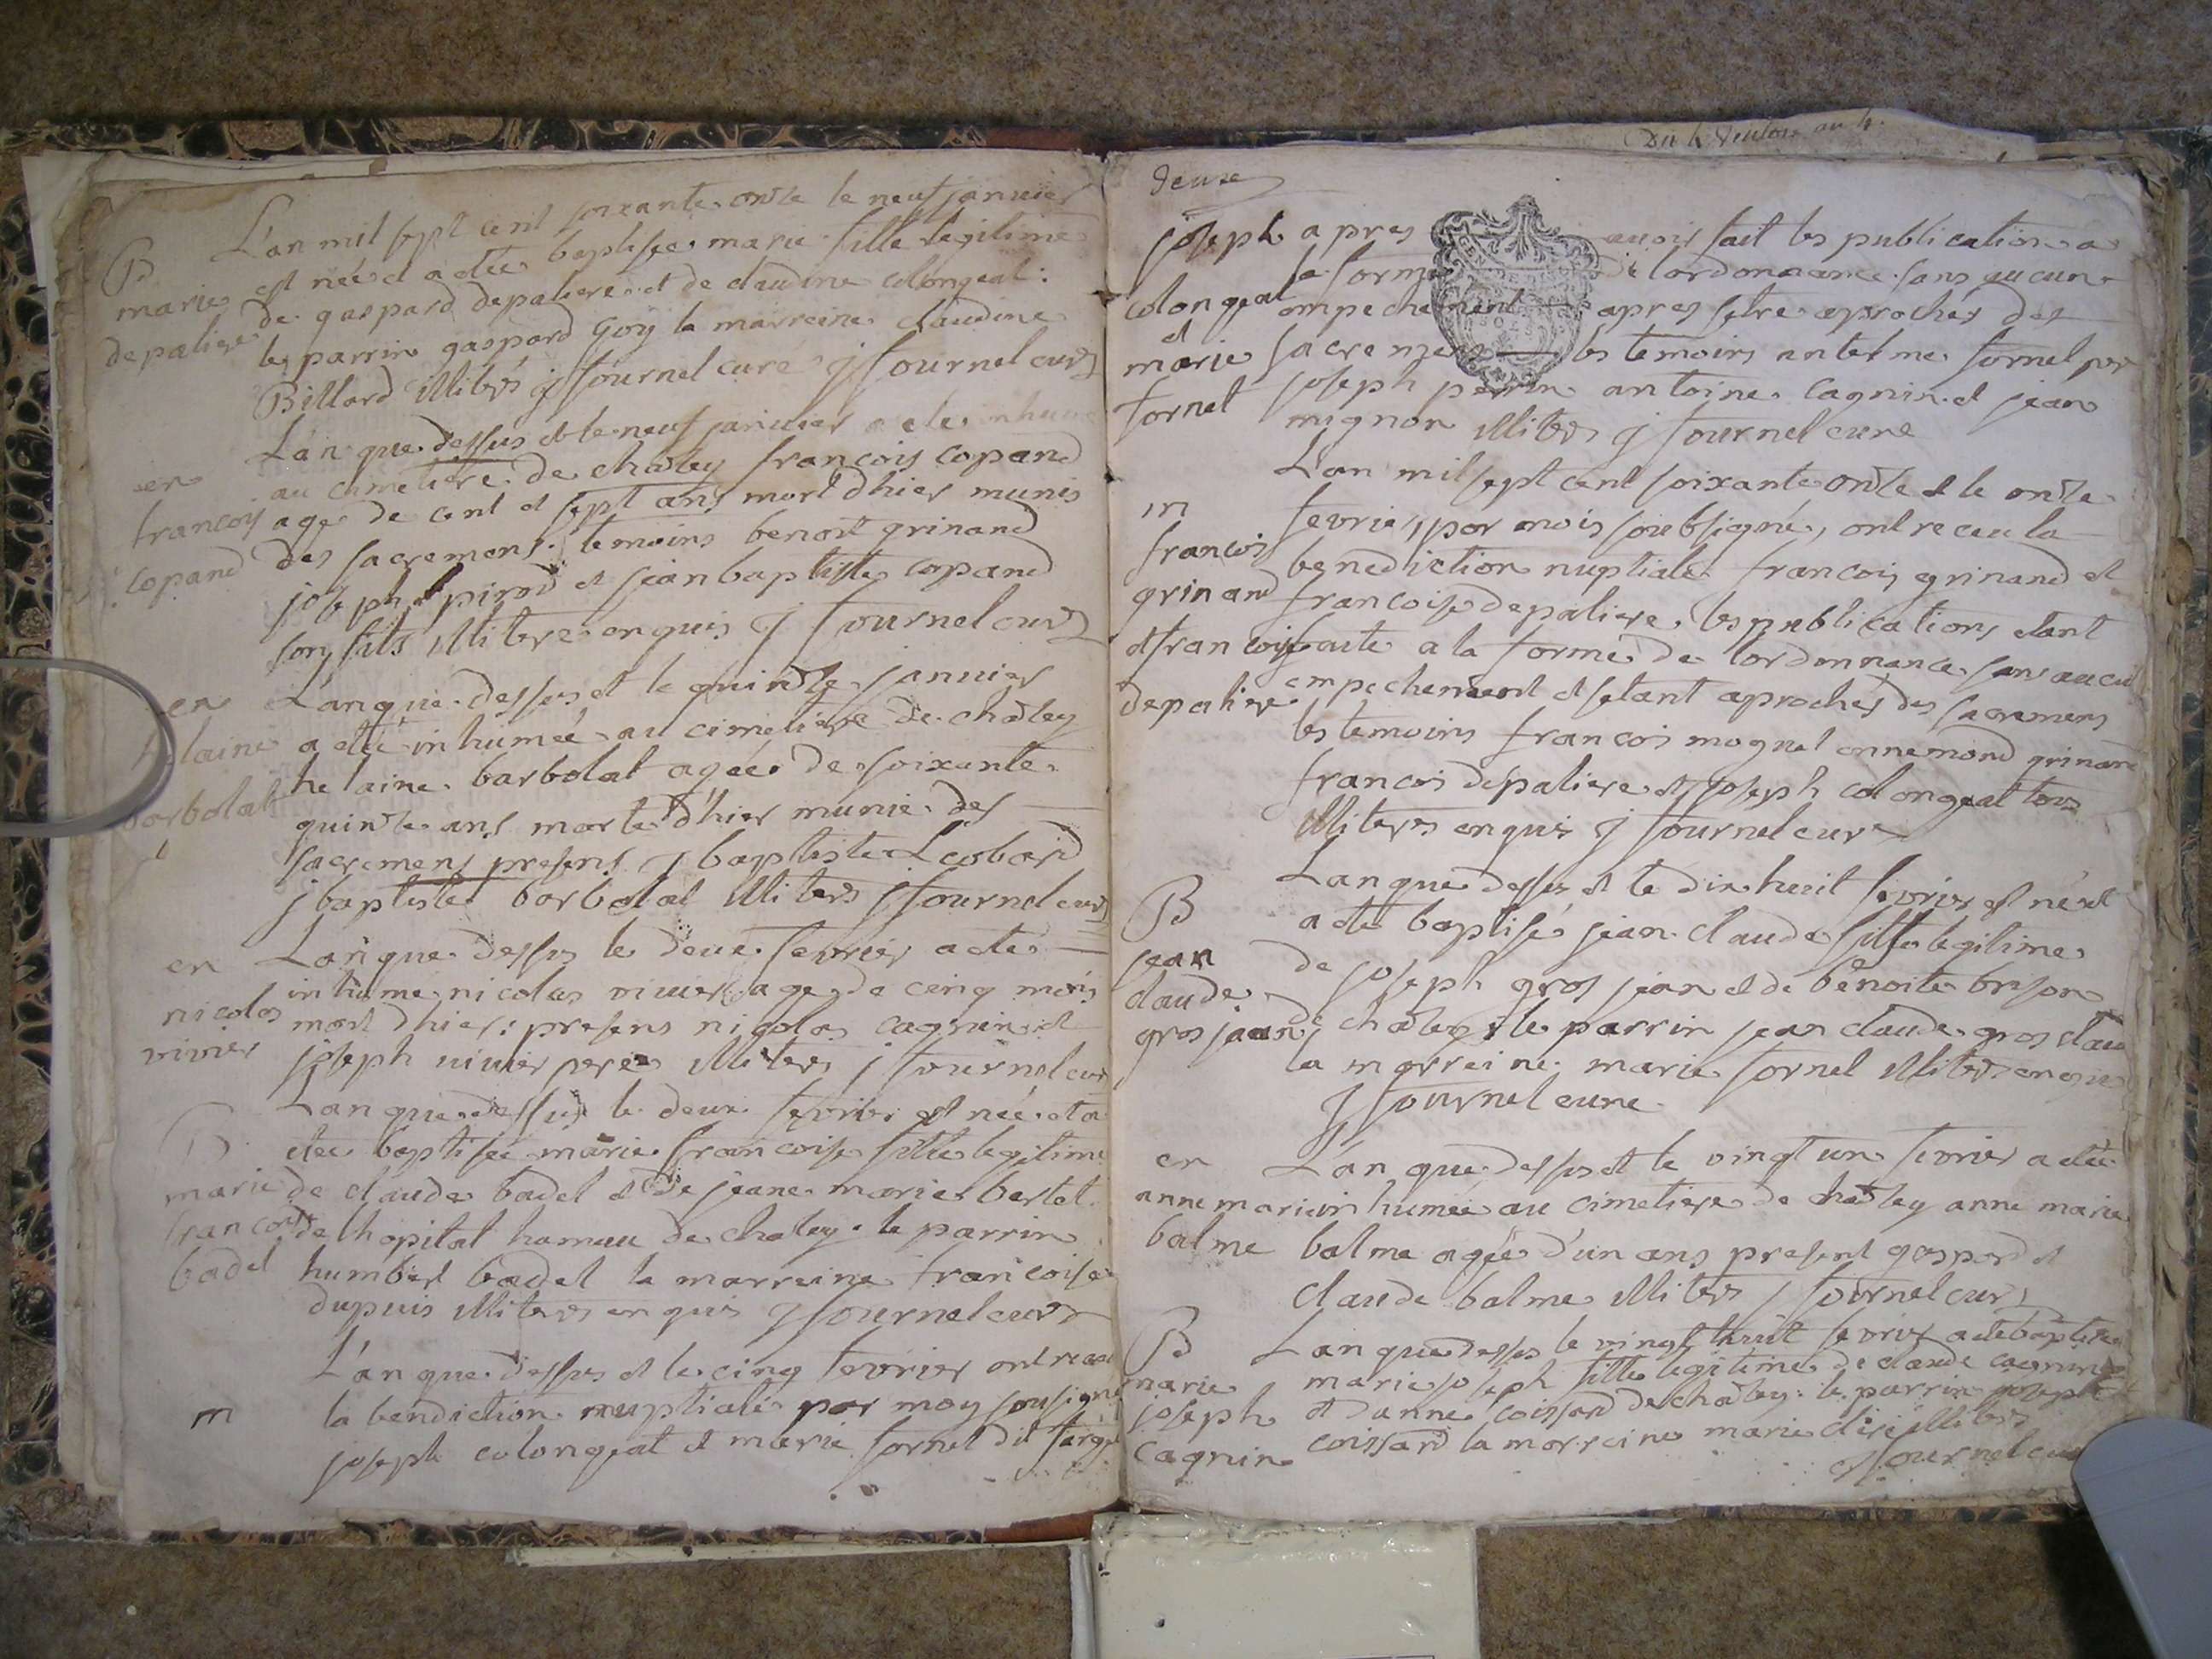 L'an mil sept cent soixante onze le neuf janvier
B
est née et a etée baptisée marie fille legitime
marie
de gaspard depaliere et de claudine colongeat :
depaliere
le parrin gaspard Goy la marreine claudine
Billard illiterés j fournel curé j fournel curé
L'an que dessus et le neuf janvier a eté inhumé
en
au cimetiere de chatey francois copand
francois
agé de cent et sept ans mort d'hier munis
copand
des sacremens. temoins benoit grinand
joseph pirod et jean baptiste copand
son fils illitere enquis j fournel curé
en
L'an que dessus et le quinze janvier
helaine
a etée inhumée au cimetiere de chatey
helaine barbolat agée de soixante
barbolat
quinze ans morte d'hier munie des
sacremens presens j baptiste Leobard
j baptiste barbolat illiterés j fournel curé
en
L'an que dessus le deux fevrier a eté
inhumé nicolas vivier agé de cinq mois
nicolas
mort d'hier : presens nicolas cagnin et
vivier
joseph vivier pere illiteres j fournel curé
L'an que dessus le deux fevrier est née et a
B
etée baptisée marie francoise fille legitime
marie
de claude badel et de jeane marie bertet
francoise
de lhopital hameau de chatey. le parrin
badel
humbert badel la marreine francoise
dupuis illiterés enquis j fournel curé
L'an que dessus et le cinq fevrier ont receu
m
la bendiction nuptiale par moy sousigné
joseph colongeat et marie fornel dit
Du 4 ventose an 4.
deuxe
joseph
apres avoir fait les publications a
la forme de lordonnance sans aucun
colongeat
empechement apres setre aprochés des
et
marie
sacremens les temoins antelme fornel pere
fornel
joseph perrin antoine cagnin et jean
mignon illiterés j fournel curé
L'an mil sept cent soixante onze et le onze
m
fevrier, par mois soubsigné, ont receu la
francois
benediction nuptiale francois grinand et
grinand
francoise depaliere, les publications etant
et francoise
faite a la forme de lordonnance sans aucun
depaliere
empechement et setant aprochés des sacremens
les temoins francois mognel ennemond grinand
francois depaliere et joseph colongeat tous
illiterés enquis j fournel curé
L'an que dessus et le dix huit fevrier est né et
B
a eté baptisé jean claude fils legitime
jean
de joseph gros jean et de benoite brison
claude
gros jean
de chatey le parrin jean claude gros claude
la marreine marie fornel illiterés enquis
j fournel curé
en
L'an que dessus et le vingt un fevrier a etée
anne marie
inhumée au cimetiere de chatey anne marie
balme
balme agée d'un ans present gaspard et
claude balme illiterés j fournel curé
B
L'an que dessus le vingt huit fevrier a eté baptisée
marie
marie joseph fille legitime de claude cagnin
joseph
et d'anne coissard de chatey : le parrin joseph
cagnin
coissard la marreine marie illiterés
j fournel curé